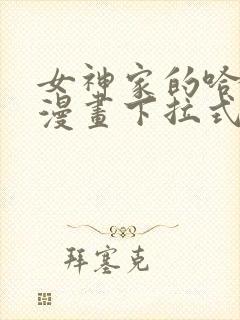 女神家的哈
漫畫下拉式
拜塞克